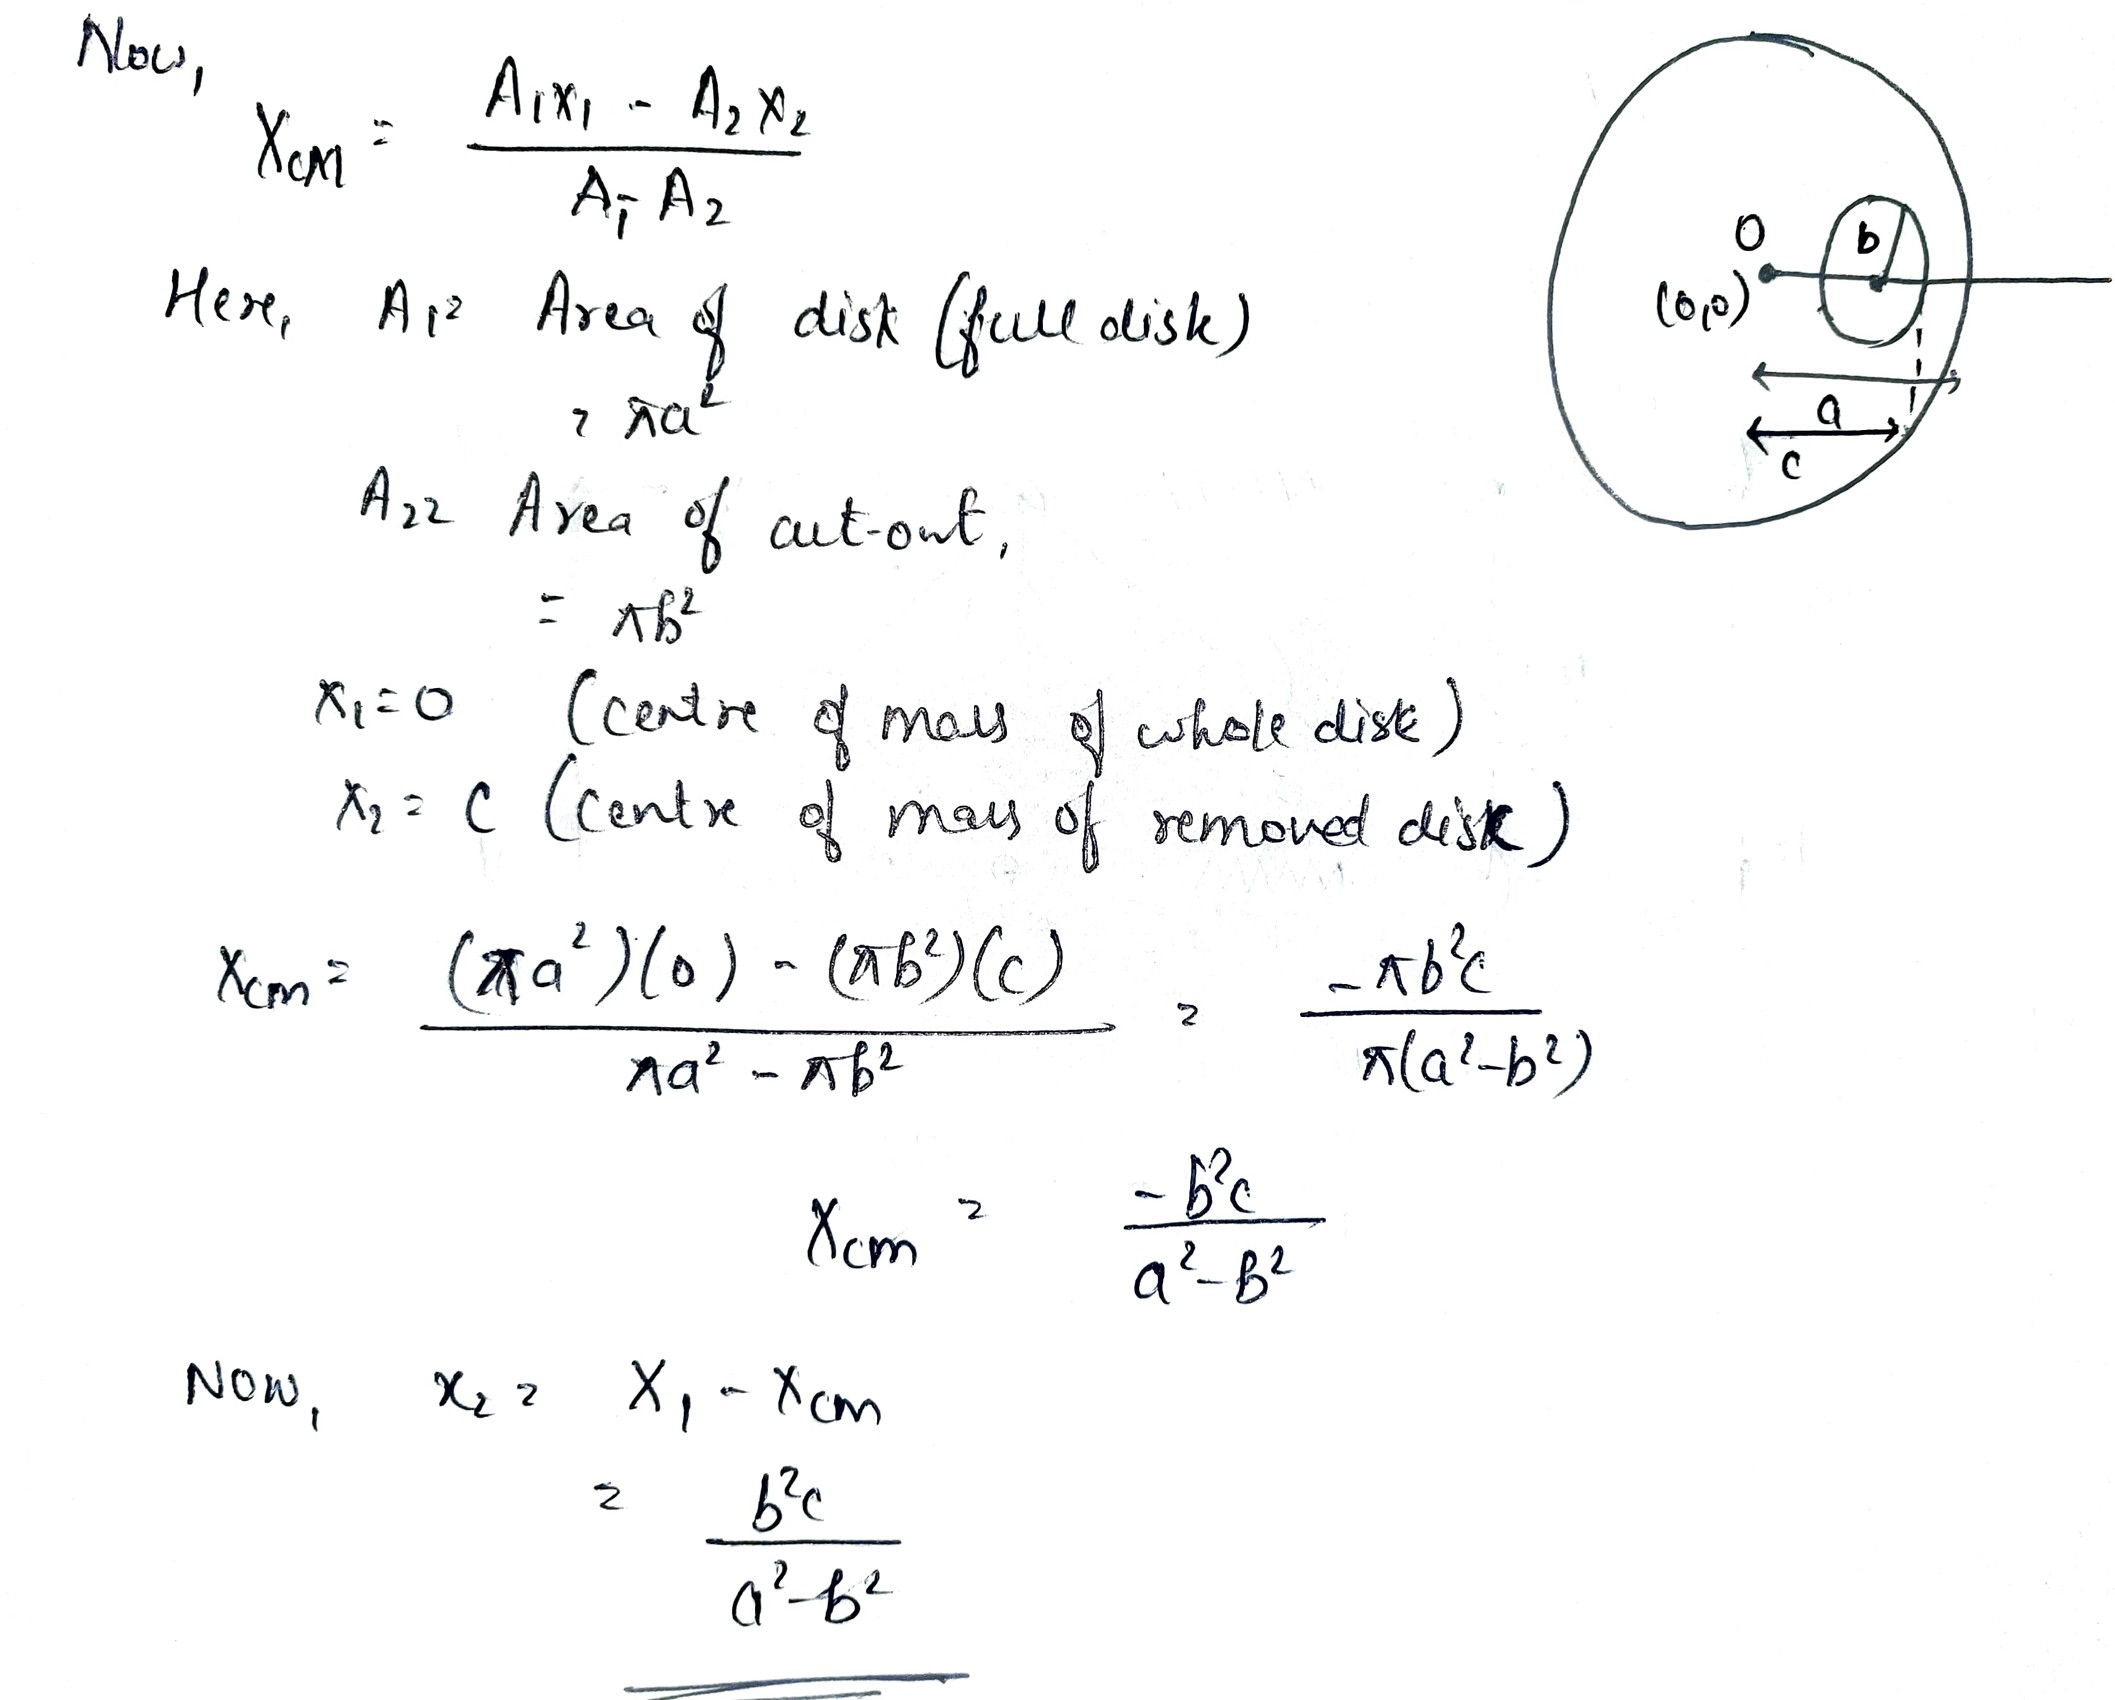 Now,
X_CM = (A₁x₁ - A₂x₂) / (A₁ - A₂)
O
b
(0,0)
a
c
Here, A₁ = Area of disk (full disk)
= πa²
A₂ = Area of cut-out,
= πb²
x₁ = 0 (centre of mass of whole disk)
x₂ = c (centre of mass of removed disk)
X_cm = ((πa²)(0) - (πb²)(c)) / (πa² - πb²) = -πb²c / π(a²-b²)
X_cm = -b²c / (a²-b²)
Now, x₂ = X₁ - X_cm
= b²c / (a²-b²)